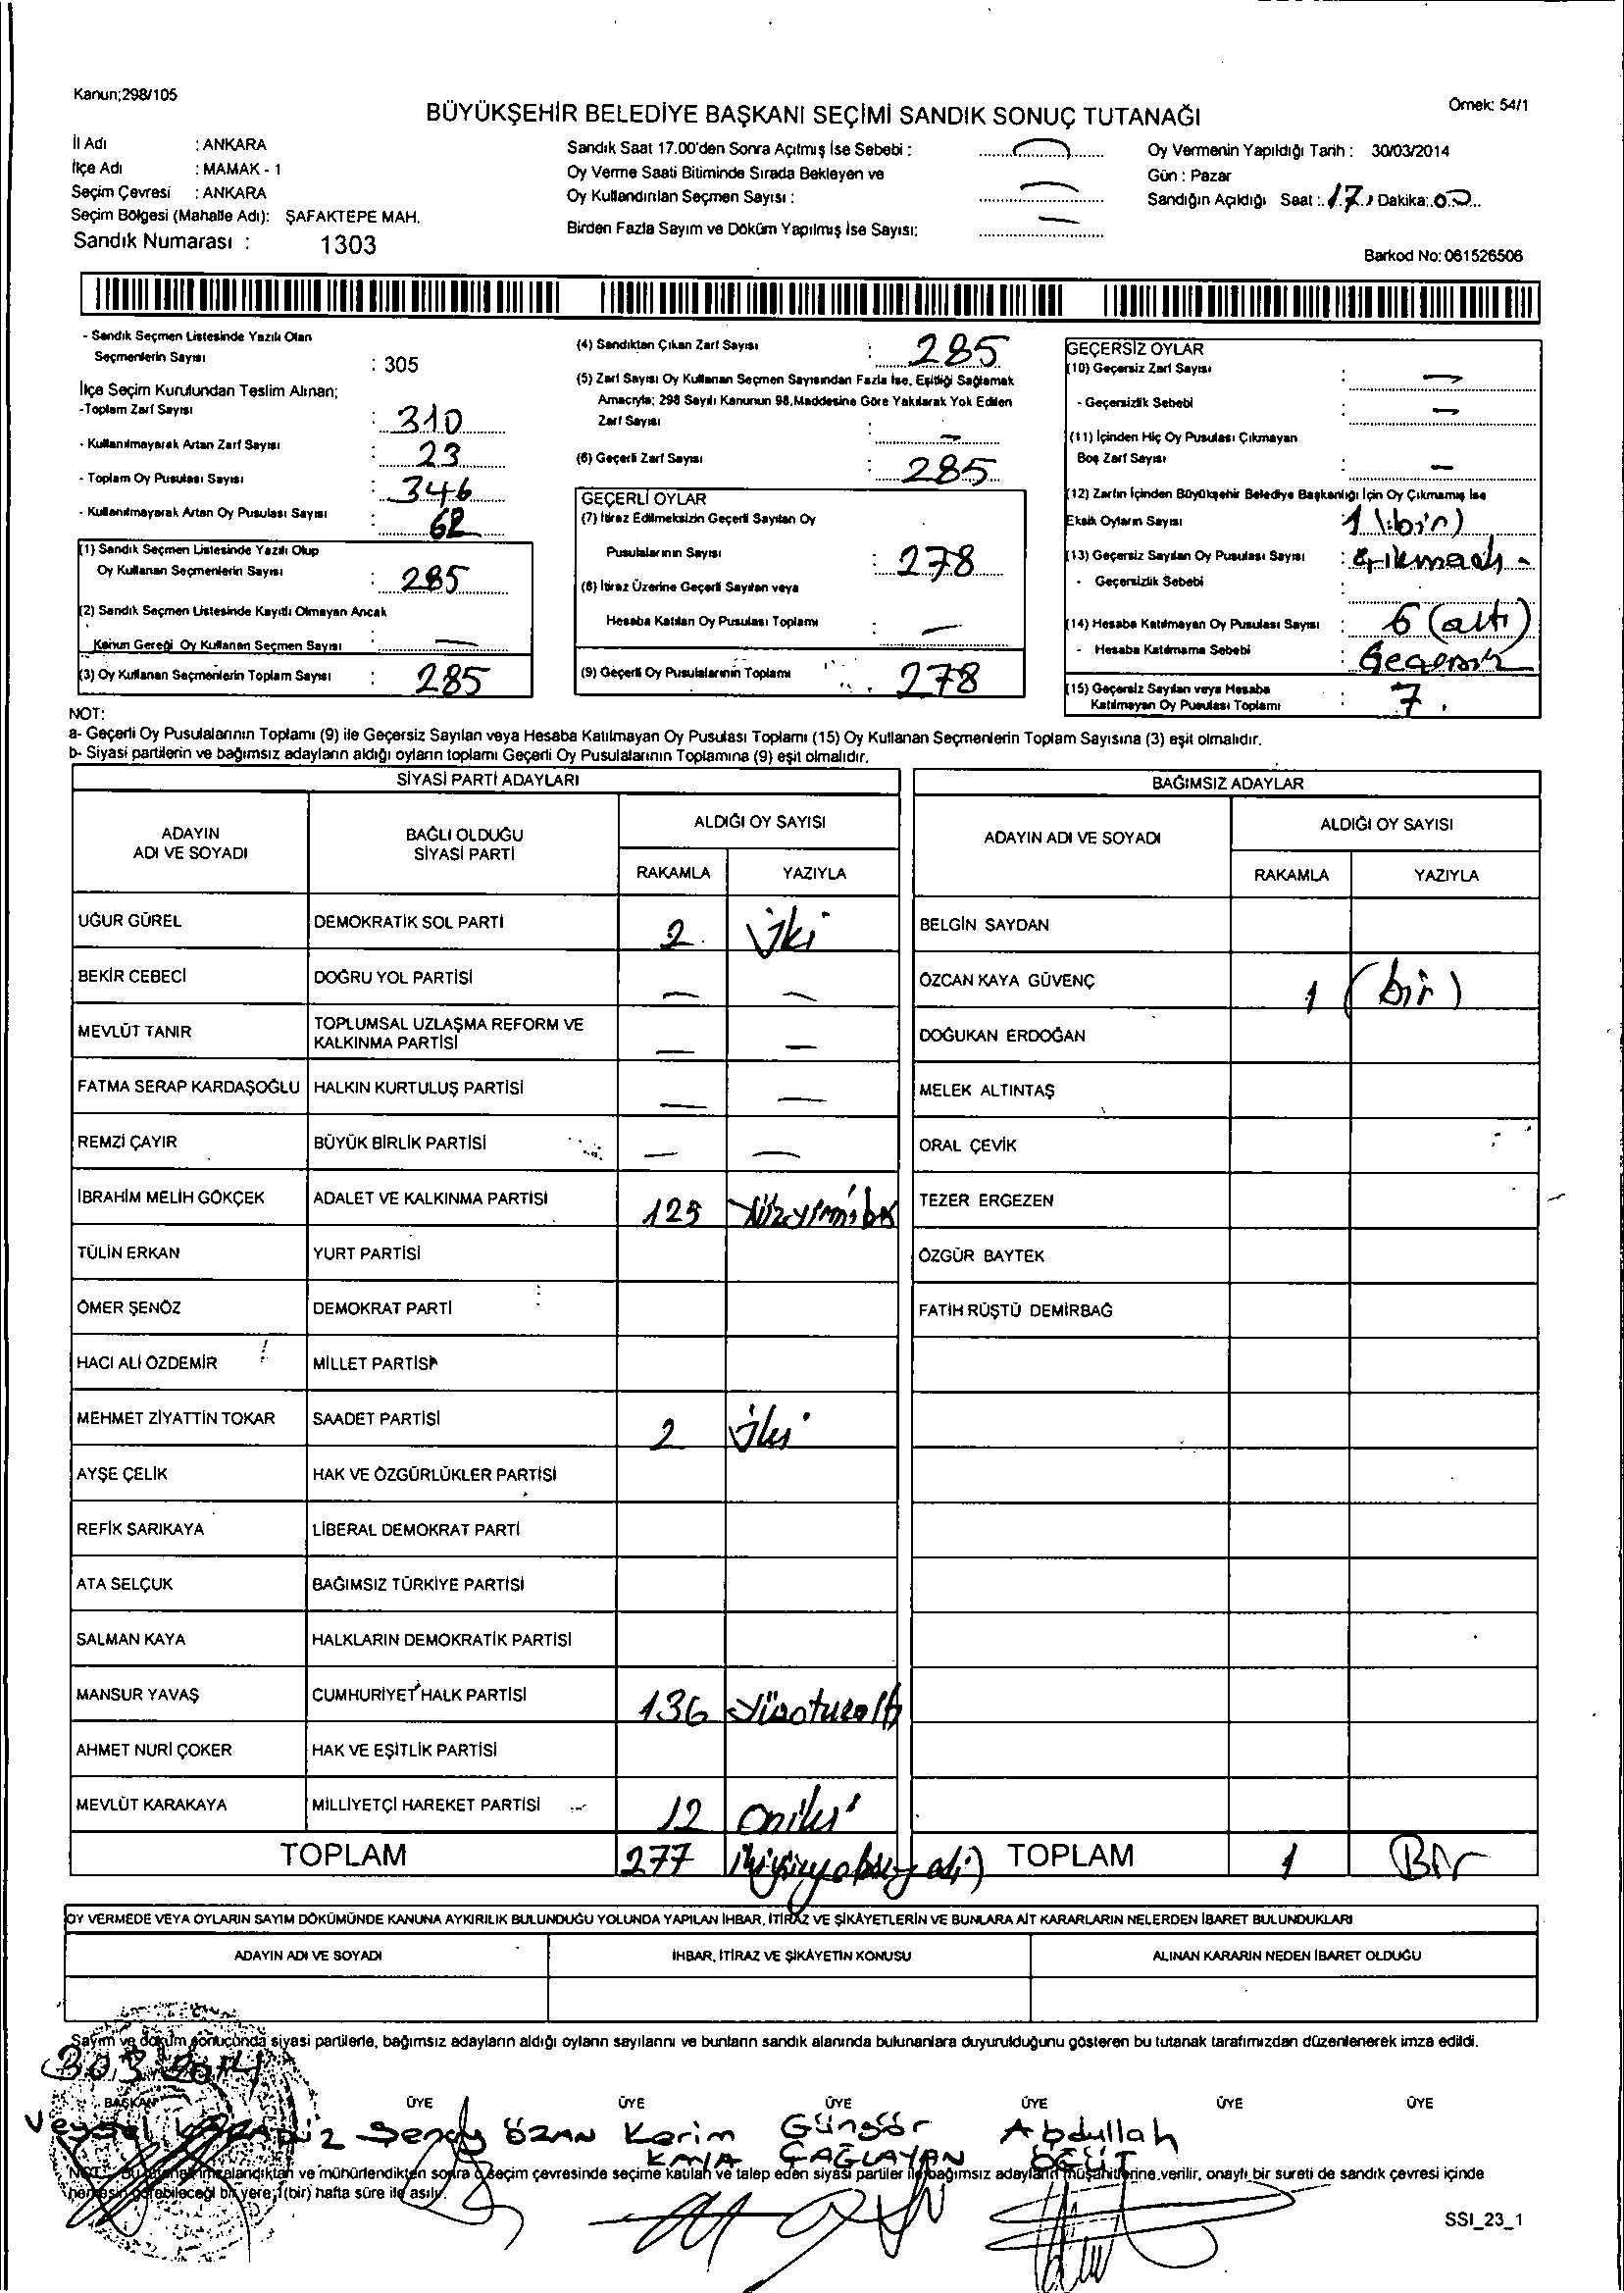 Kanun;298/105
Örnek: 54/1
BÜYÜKŞEHİR BELEDİYE BAŞKANI SEÇİMİ SANDIK SONUÇ TUTANAĞI
İl Adı : ANKARA
İlçe Adı : MAMAK - 1
Seçim Çevresi : ANKARA
Seçim Bölgesi (Mahalle Adı): ŞAFAKTEPE MAH.
Sandık Numarası : 1303
Sandık Saat 17.00'den Sonra Açılmış İse Sebebi :
Oy Verme Saati Bitiminde Sırada Bekleyen ve
Oy Kullandırılan Seçmen Sayısı : —
Birden Fazla Sayım ve Döküm Yapılmış İse Sayısı: —
Oy Vermenin Yapıldığı Tarih : 30/03/2014
Gün : Pazar
Sandığın Açıldığı Saat : 17 Dakika: 00
Barkod No: 061526506
- Sandık Seçmen Listesinde Yazılı Olan
Seçmenlerin Sayısı : 305
İlçe Seçim Kurulundan Teslim Alınan;
-Toplam Zarf Sayısı : 310
- Kullanılmayarak Artan Zarf Sayısı : 23
- Toplam Oy Pusulası Sayısı : 346
- Kullanılmayarak Artan Oy Pusulası Sayısı : 62
(1) Sandık Seçmen Listesinde Yazılı Olup
Oy Kullanan Seçmenlerin Sayısı : 285
(2) Sandık Seçmen Listesinde Kayıtlı Olmayan Ancak
Kanun Gereği Oy Kullanan Seçmen Sayısı : —
(3) Oy Kullanan Seçmenlerin Toplam Sayısı : 285
(4) Sandıktan Çıkan Zarf Sayısı : 285
(5) Zarf Sayısı Oy Kullanan Seçmen Sayısından Fazla İse, Eşitliği Sağlamak
Amacıyla; 298 Sayılı Kanunun 98.Maddesine Göre Yakılarak Yok Edilen
Zarf Sayısı : —
(6) Geçerli Zarf Sayısı : 285
GEÇERLİ OYLAR
(7) İtiraz Edilmeksizin Geçerli Sayılan Oy
Pusulalarının Sayısı : 278
(8) İtiraz Üzerine Geçerli Sayılan veya
Hesaba Katılan Oy Pusulası Toplamı : —
(9) Geçerli Oy Pusulalarının Toplamı : 278
GEÇERSİZ OYLAR
(10) Geçersiz Zarf Sayısı : —
- Geçersizlik Sebebi : —
(11) İçinden Hiç Oy Pusulası Çıkmayan
Boş Zarf Sayısı : —
(12) Zarfın İçinden Büyükşehir Belediye Başkanlığı İçin Oy Çıkmamış İse
Eksik Oyların Sayısı 1 (bir)
(13) Geçersiz Sayılan Oy Pusulası Sayısı : çıkmadı -
- Geçersizlik Sebebi :
(14) Hesaba Katılmayan Oy Pusulası Sayısı : 6 (altı)
- Hesaba Katılmama Sebebi : Geçersiz
(15) Geçersiz Sayılan veya Hesaba
Katılmayan Oy Pusulası Toplamı : 7
NOT:
a- Geçerli Oy Pusulalarının Toplamı (9) ile Geçersiz Sayılan veya Hesaba Katılmayan Oy Pusulası Toplamı (15) Oy Kullanan Seçmenlerin Toplam Sayısına (3) eşit olmalıdır.
b- Siyasi partilerin ve bağımsız adayların aldığı oyların toplamı Geçerli Oy Pusulalarının Toplamına (9) eşit olmalıdır.
SİYASİ PARTİ ADAYLARI
ADAYIN ADI VE SOYADI
BAĞLI OLDUĞU SİYASİ PARTİ
ALDIĞI OY SAYISI
RAKAMLA YAZIYLA
UĞUR GÜREL DEMOKRATİK SOL PARTİ 2 iki
BEKİR CEBECİ DOĞRU YOL PARTİSİ — —
MEVLÜT TANIR TOPLUMSAL UZLAŞMA REFORM VE KALKINMA PARTİSİ — —
FATMA SERAP KARDAŞOĞLU HALKIN KURTULUŞ PARTİSİ — —
REMZİ ÇAYIR BÜYÜK BİRLİK PARTİSİ — —
İBRAHİM MELİH GÖKÇEK ADALET VE KALKINMA PARTİSİ 125
TÜLİN ERKAN YURT PARTİSİ
ÖMER ŞENÖZ DEMOKRAT PARTİ
HACI ALİ ÖZDEMİR MİLLET PARTİSİ
MEHMET ZİYATTİN TOKAR SAADET PARTİSİ 2 iki
AYŞE ÇELİK HAK VE ÖZGÜRLÜKLER PARTİSİ
REFİK SARIKAYA LİBERAL DEMOKRAT PARTİ
ATA SELÇUK BAĞIMSIZ TÜRKİYE PARTİSİ
SALMAN KAYA HALKLARIN DEMOKRATİK PARTİSİ
MANSUR YAVAŞ CUMHURİYET HALK PARTİSİ 136 yüzotuzaltı
AHMET NURİ ÇOKER HAK VE EŞİTLİK PARTİSİ
MEVLÜT KARAKAYA MİLLİYETÇİ HAREKET PARTİSİ 12 oniki
TOPLAM 277
BAĞIMSIZ ADAYLAR
ADAYIN ADI VE SOYADI
ALDIĞI OY SAYISI
RAKAMLA YAZIYLA
BELGİN SAYDAN
ÖZCAN KAYA GÜVENÇ 1 (bir)
DOĞUKAN ERDOĞAN
MELEK ALTINTAŞ
ORAL ÇEVİK
TEZER ERGEZEN
ÖZGÜR BAYTEK
FATİH RÜŞTÜ DEMİRBAĞ
TOPLAM 1 Bir
OY VERMEDE VEYA OYLARIN SAYIM DÖKÜMÜNDE KANUNA AYKIRILIK BULUNDUĞU YOLUNDA YAPILAN İHBAR, İTİRAZ VE ŞİKAYETLERİN VE BUNLARA AİT KARARLARIN NELERDEN İBARET BULUNDUKLARI
ADAYIN ADI VE SOYADI İHBAR, İTİRAZ VE ŞİKAYETİN KONUSU ALINAN KARARIN NEDEN İBARET OLDUĞU
Sayım ve döküm sonucunda siyasi partilerle, bağımsız adayların aldığı oyların sayılarını ve bunların sandık alanında bulunanlara duyurulduğunu gösteren bu tutanak tarafımızdan düzenlenerek imza edildi.
30.3.2014
BAŞKAN ÜYE ÜYE ÜYE ÜYE ÜYE ÜYE
Veysel
ÖZAN
Kerim KAYA
Güngör ÇAĞLAYAN
Abdullah ÖĞÜT
NOT: Bu tutanak imzalandıktan ve mühürlendikten sonra o seçim çevresinde seçime katılan ve talep eden siyasi partiler ile bağımsız adayların müşahitlerine verilir, onaylı bir sureti de sandık çevresi içinde
herkesin görebileceği bir yere 1(bir) hafta süre ile asılır.
SSI_23_1